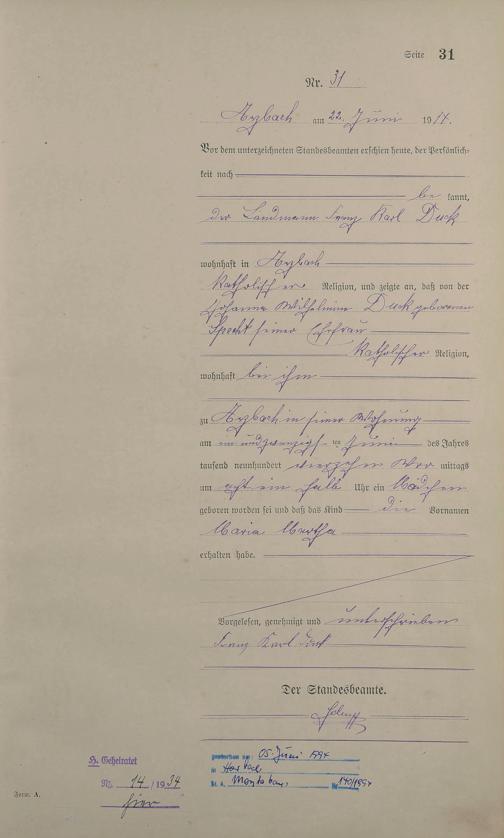 Seite 31
Nr. 31
am 22. Juni 1914.
Vor dem unterzeichneten Standesbeamten erschien heute, der Persönlich-
keit nach
be kannt,
der Landmann Franz Karl Duck
wohnhaft in
Katholischer Religion, und zeigte an, daß von der
Johanna Wilhelmine Duck geborenen
Specht seiner Ehefrau
Katholischer Religion,
wohnhaft bei ihm
zu in seiner Wohnung
am ein und zwanzigsten Juni des Jahres
tausend neunhundert vierzehn Vor mittags
um acht ein halb Uhr ein Mädchen
geboren worden sei und daß das Kind die Vornamen
Maria
erhalten habe.
Vorgelesen, genehmigt und unterschrieben
Franz Karl Duck
Der Standesbeamte.
H. Geheiratet
Nr. 14 / 1934
hier
gestorben am: 05. Juni 1994
in
St. A. Montabaur, Nr. 140/1994
Form. A.